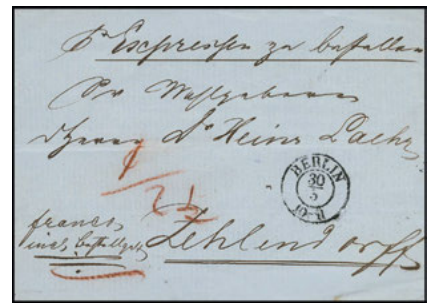 Expressen zu bestellen
Sr Wohlgeboren
Herrn Dr Heinr Laehr
1/2½
BERLIN
30
5
franco
incl. bestellgeld
Zehlendorff